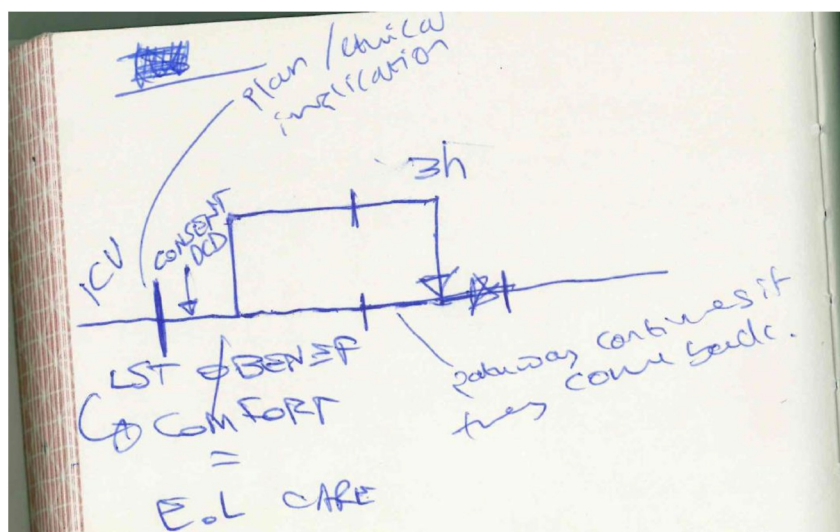 plan / ethical
implication
3h
ICU
CONSENT
DCD
LST ∅ BENEF
↳ ⊕ COMFORT
=
E.O.L CARE
pathway continues if
they come back.